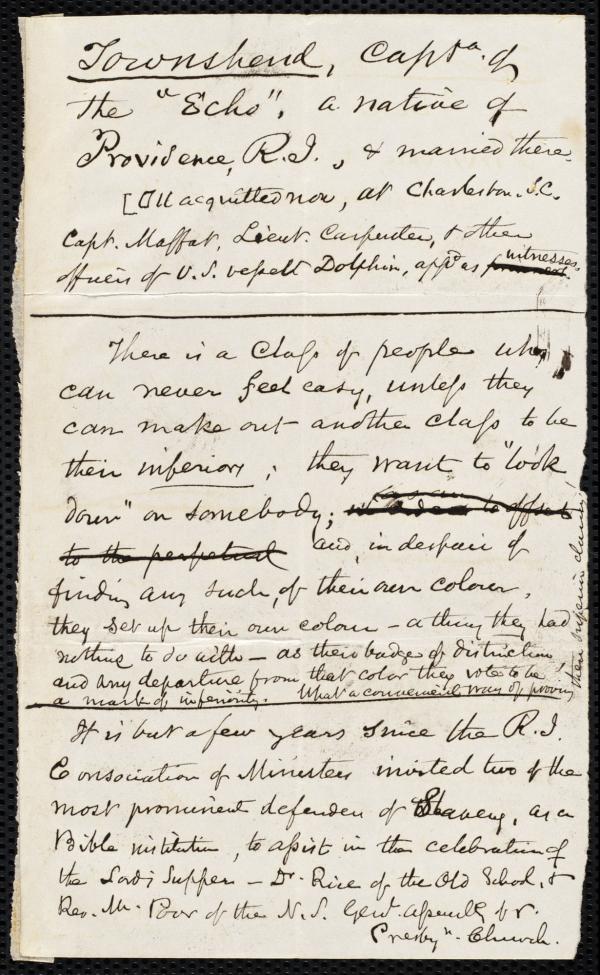 Townshend, Capta. of
the "Echo", a native of
Providence, R.I., & married there.
[All acquitted now, at Charleston. S.C.
Capt. Maffat, Lieut. Carpenter, & other
officers of U.S. vessell Dolphin, appd as witnesses.
There is a class of people who
can never feel easy, unless they
can make out another class to be
their inferiors; they want to "look
down" on somebody; as an to offset
to the perpetual and, in despair of
finding any such, of their own colour,
they set up their own colour - a thing they had
nothing to do with - as their badge of distinction
and any departure from that color they vote to be
a mark of inferiority. What a convenient way of proving
their superior claims!
It is but a few years since the R.I.
Consociation of Ministers invited two of the
most prominent defenders of Slavery, as a
Bible institution, to assist in the celebration of
the Lord's Supper - Dr. Rice of the Old School, &
Rev. Mr. Poor of the N.S. Genl. Assembly of
Presbyn. Church.